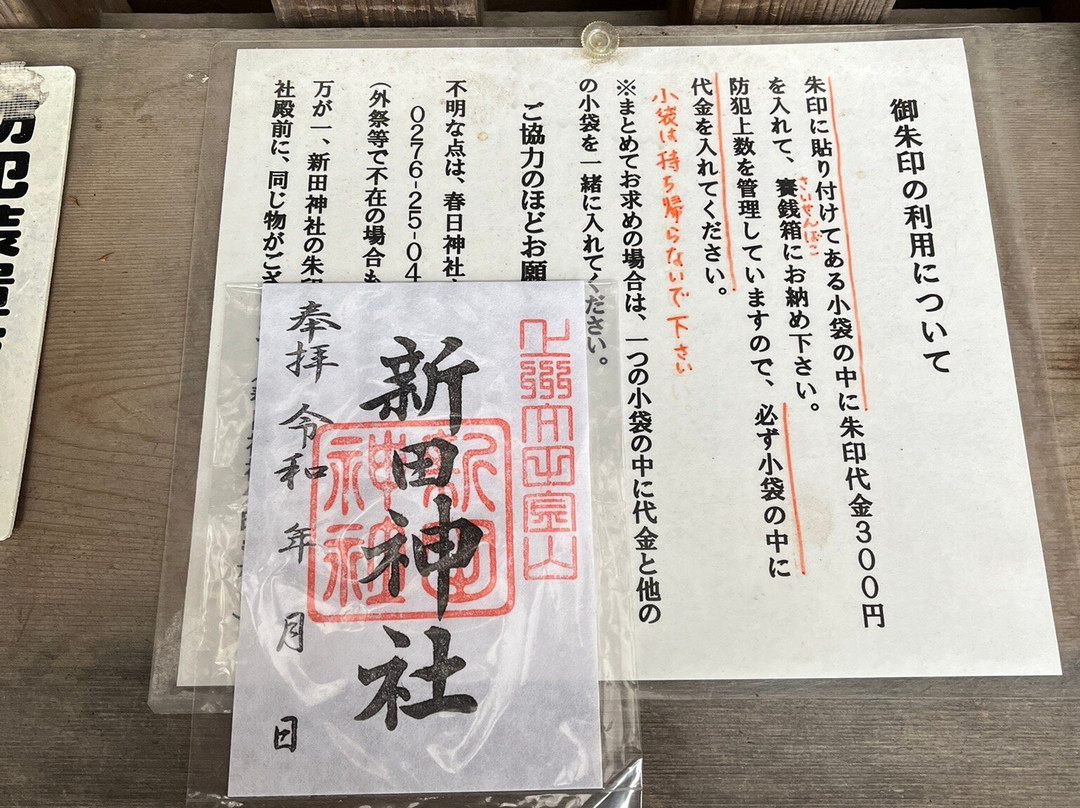 御朱印の利用について
朱印に貼り付けてある小袋の中に朱印代金３００円
を入れて、賽銭箱にお納め下さい。
さいせんばこ
防犯上数を管理していますので、必ず小袋の中に
代金を入れてください。
小袋は持ち帰らないで下さい
※まとめてお求めの場合は、一つの小袋の中に代金と他の
の小袋を一緒に入れてください。
ご協力のほどお願
不明な点は、春日神社
０２７６-２５-０４
（外祭等で不在の場合も
万が一、新田神社の朱印
社殿前に、同じ物がござ
新田神社
奉拝 令和 年 月 日
新田
神社
防犯装置